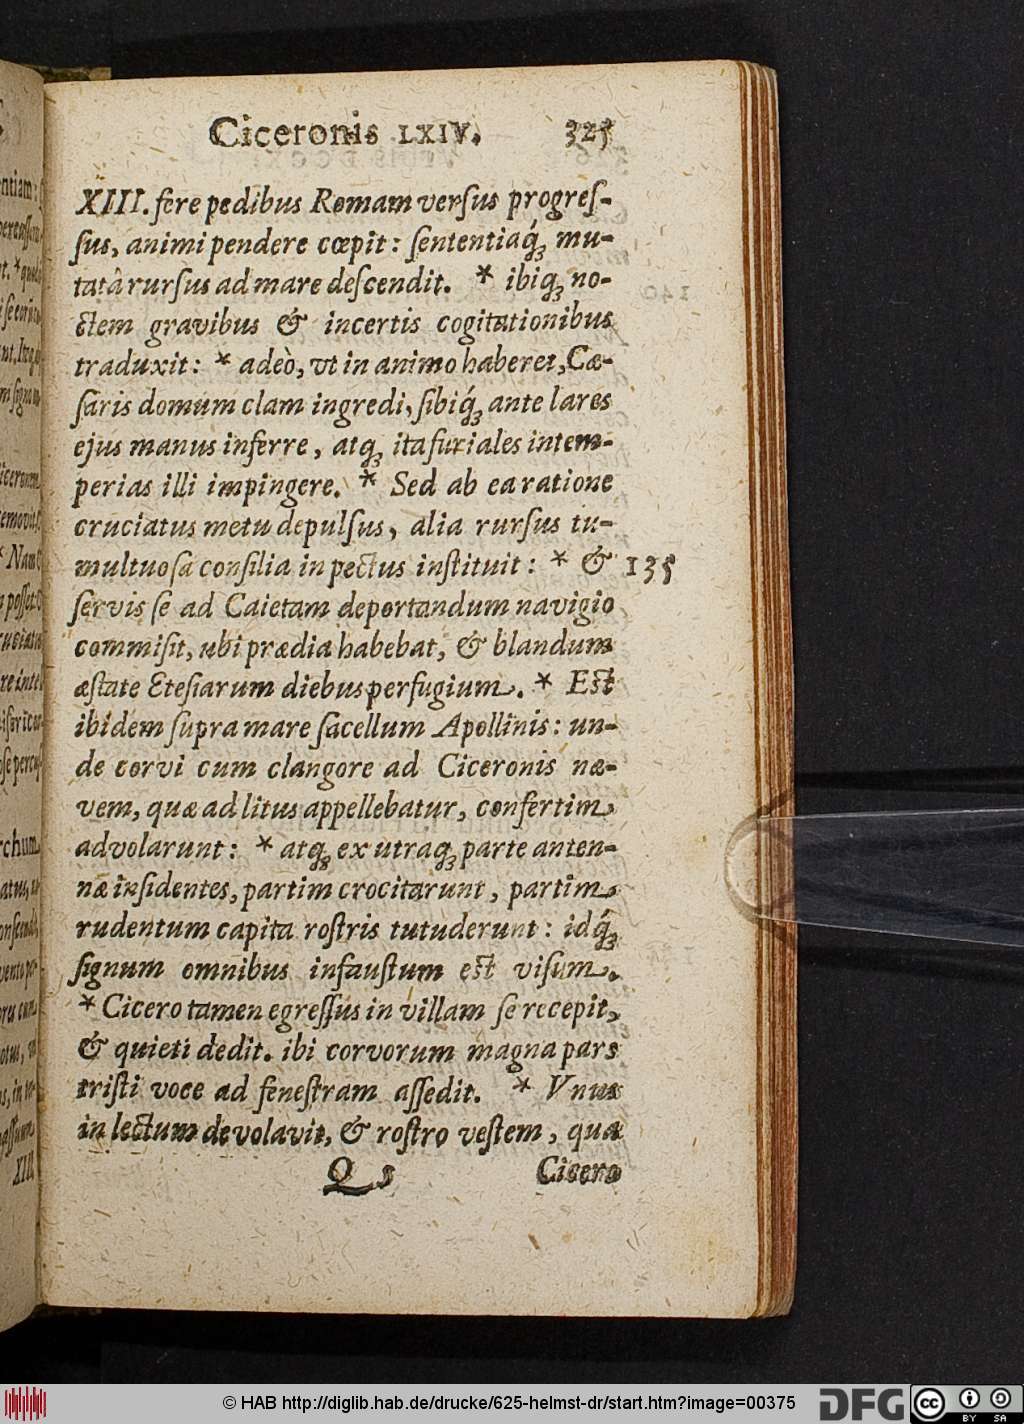 Ciceronis LXIV. 325
XIII. fere pedibus Romam versus progreſ-
ſus, animi pendere cœpit: ſententiaq́ꝫ mu-
tatâ rurſus ad mare deſcendit. * ibiqꝫ no-
ctem gravibus & incertis cogitationibus
traduxit: * adeò, vt in animo haberet, Cæ-
ſaris domum clam ingredi, ſibiq́ꝫ ante lares
ejus manus inferre, atqꝫ ita furiales intem-
perias illi impingere. * Sed ab ea ratione
cruciatus metu depulſus, alia rurſus tu-
multuoſa conſilia in pectus inſtituit: * & 135
ſervis ſe ad Caietam deportandum navigio
commiſit, ubi prædia habebat, & blandum
æſtate Eteſiarum diebus perfugium. * Eſt
ibidem ſupra mare ſacellum Apollinis: un-
de corvi cum clangore ad Ciceronis na-
vem, quæ ad litus appellebatur, confertim
advolarunt: * atqꝫ ex utraqꝫ parte anten-
næ inſidentes, partim crocitarunt, partim
rudentum capita roſtris tutuderunt: idq́ꝫ
ſignum omnibus infauſtum eſt viſum.
* Cicero tamen egreſſus in villam ſe recepit,
& quieti dedit. ibi corvorum magna pars
triſti voce ad feneſtram aſſedit. * Vnus
in lectum devolavit, & roſtro veſtem, qua
Q 3 Cicero
© HAB http://diglib.hab.de/drucke/625-helmst-dr/start.htm?image=00375
DFG
cc BY SA